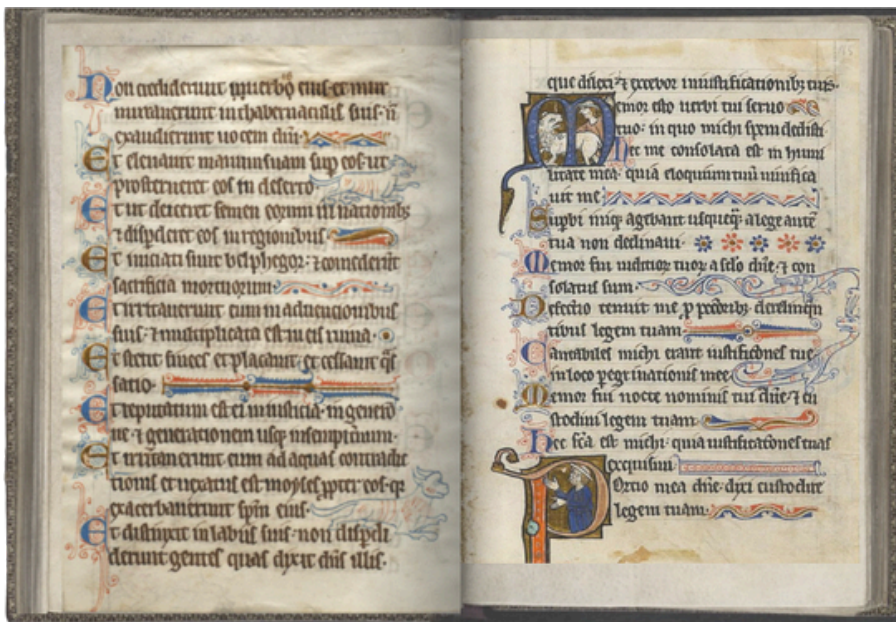 Non crediderunt in verbo eius et mur
muraverunt in tabernaculis suis · n̄
exaudierunt vocem dn̄i
Et elevavit manum suam sup eos · ut
prosterneret eos in deserto ·
Et ut deiceret semen eorum in nationib3
⁊ dispderet eos in regionibus
Et iniciati sunt belphegor · ⁊ comederūt
sacrificia mortuorum ·
Et irritaverunt eum in adinventionibus
suis · ⁊ multiplicata est in eis ruina ·
Et stetit finees et placavit · et cessavit q̄s
satio ·
Et reputatum est ei in iusticia · in generō
ne ⁊ generationem usq3 in sempiternum ·
Et irritaverunt eum ad aquas contradic
tionis et vexatus est moyses ppter eos · q̄
exacerbaverunt spm̄ eius ·
Et distinxit in labiis suis · non dispdi
derunt gentes quas dixit dn̄s illis ·
que dilexi ⁊ exercebor in iustificationib3 tuis ·
Memor esto verbi tui servo
tuo · in quo michi spem dedisti
Hec me consolata est in humi
litate mea · quia eloquium tuū vivifica
vit me
Supbi iniq̄ agebant usqueq3 · a lege autē
tua non declinavi ·
Memor fui iudicior tuor a sc̄lo dn̄e · ⁊ con
solatus sum ·
Defectio tenuit me · p peccatorib3 derelinqn
tibus legem tuam
Cantabiles michi erant iustificōnes tue
in loco pegrinationis mee
Memor fui nocte nominis tui dn̄e · ⁊ cu
stodivi legem tuam
Hec fc̄a est michi · quia iustificatōnes tuas
exquisivi
Portio mea dn̄e · dixi custodire
legem tuam